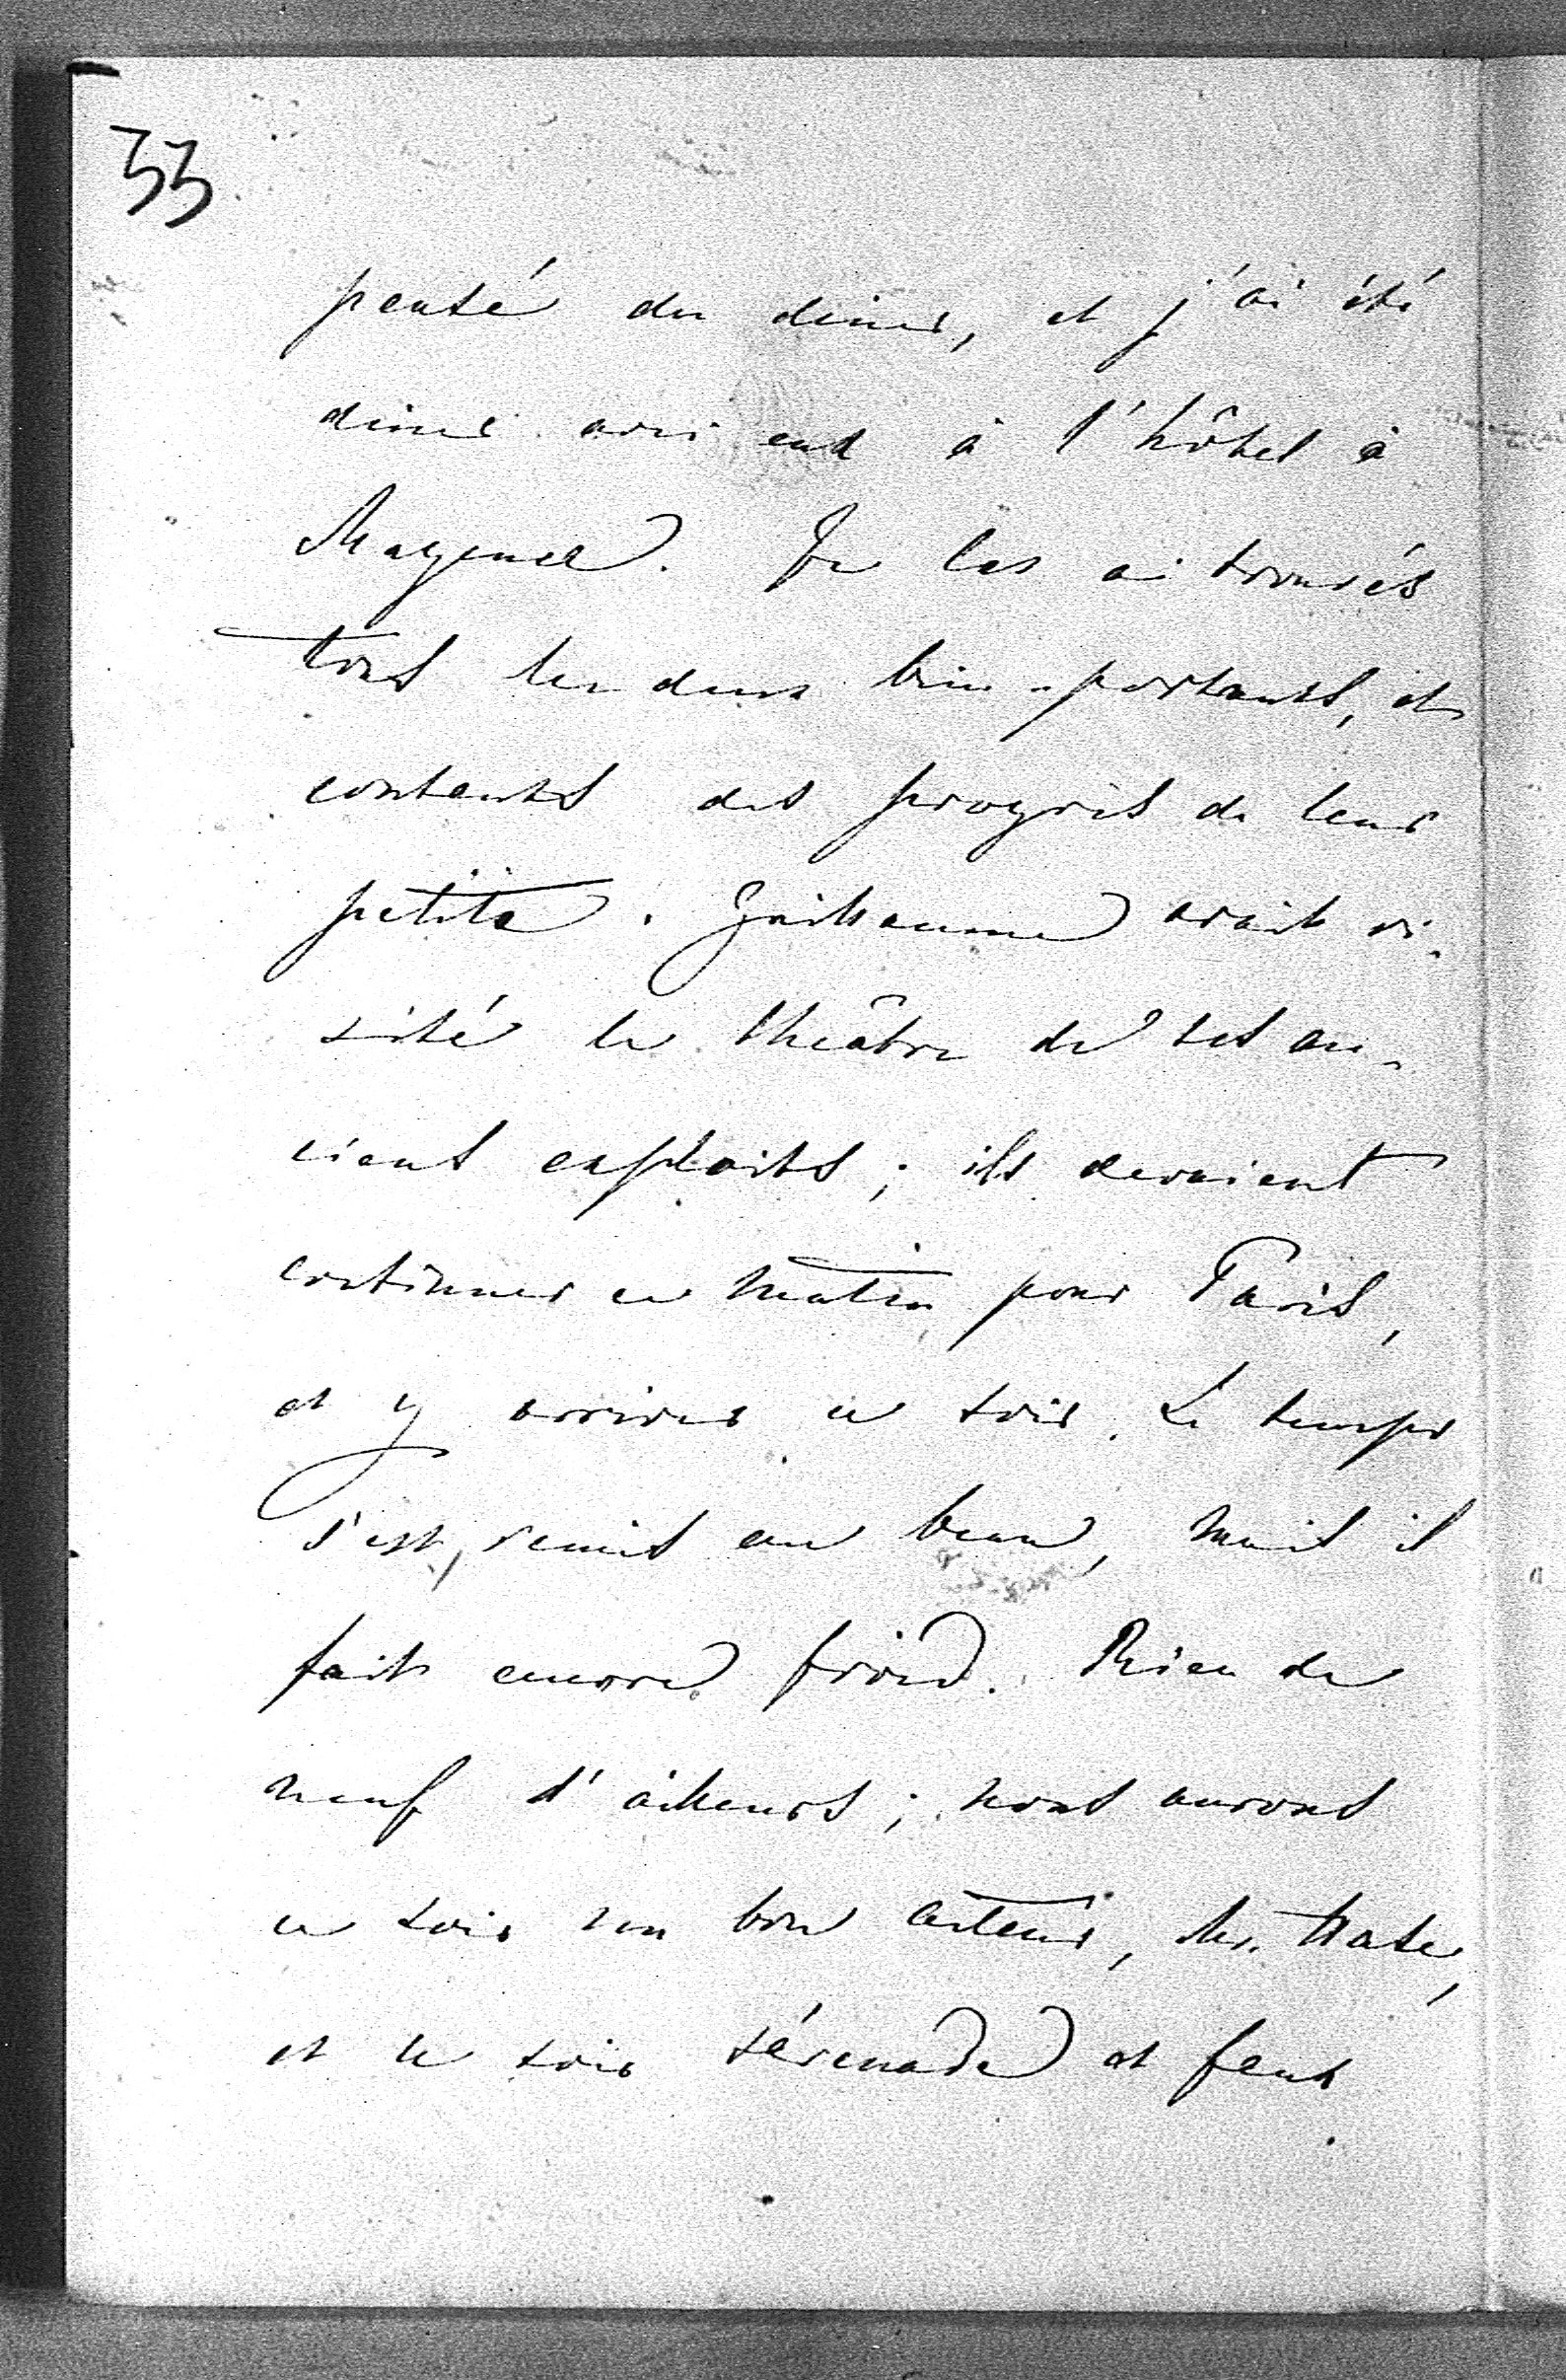 33
pensé du diner, et j'ai été
diner avec eux à l'hôtel à
Mayence. Je les ai trouvés
tous les deux bien-portants, et
contents des progrès de leur
petite. Guillaume avait vi-
sité le théâtre de ses an-
ciens exploits; ils devaient
continuer ce matin pour Paris,
et y arriver ce soir. Le temps
s'est remis au beau, mais il
fait encore froid. Rien de
neuf d'ailleurs; nous aurons
ce soir un bon acteur, Mr. Hase,
et le soir sérénade et feux